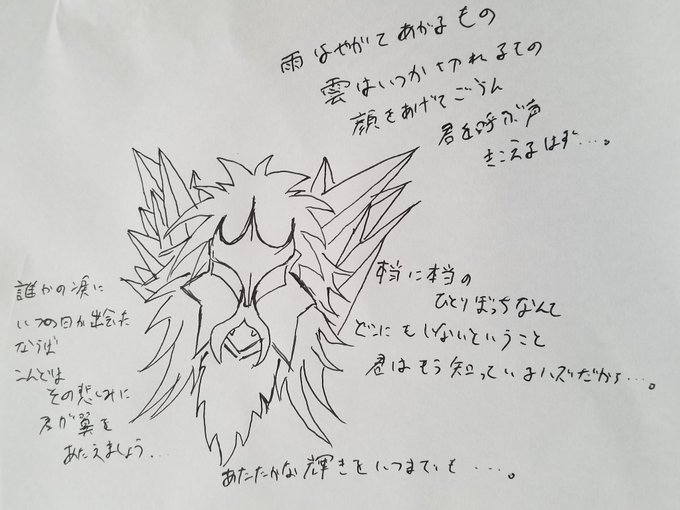 雨はやがてあがるもの
雲はいつか切れるもの
顔をあげてごらん
君を呼ぶ声
きこえるはず・・・。
本当に本当の
ひとりぼっちなんて
どこにもいないということ
君はもう知っているハズだから・・・。
誰かの涙に
いつの日か出会た
ならば
こんどは
その悲しみに
君が翼を
あたえましょう・・・
あたたかな輝きをいつまでも・・・。